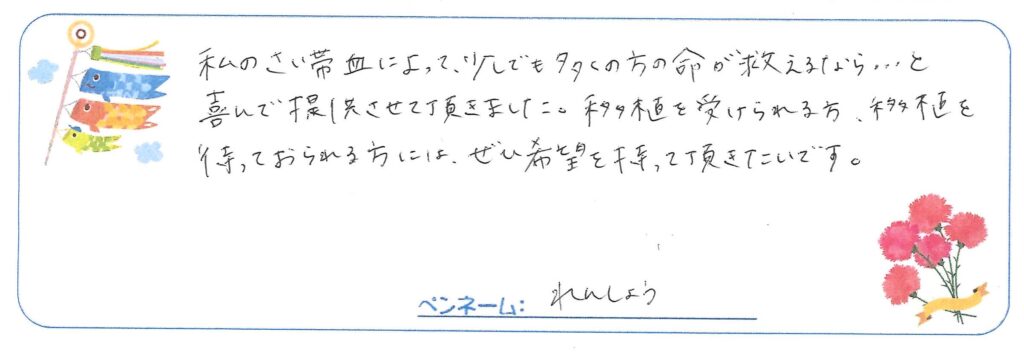 私のさい帯血によって、少しでも多くの方の命が救えるなら…と
喜んで提供させて頂きました。移植を受けられる方、移植を
待っておられる方には、ぜひ希望を持って頂きたいです。
ペンネーム: れんしょう